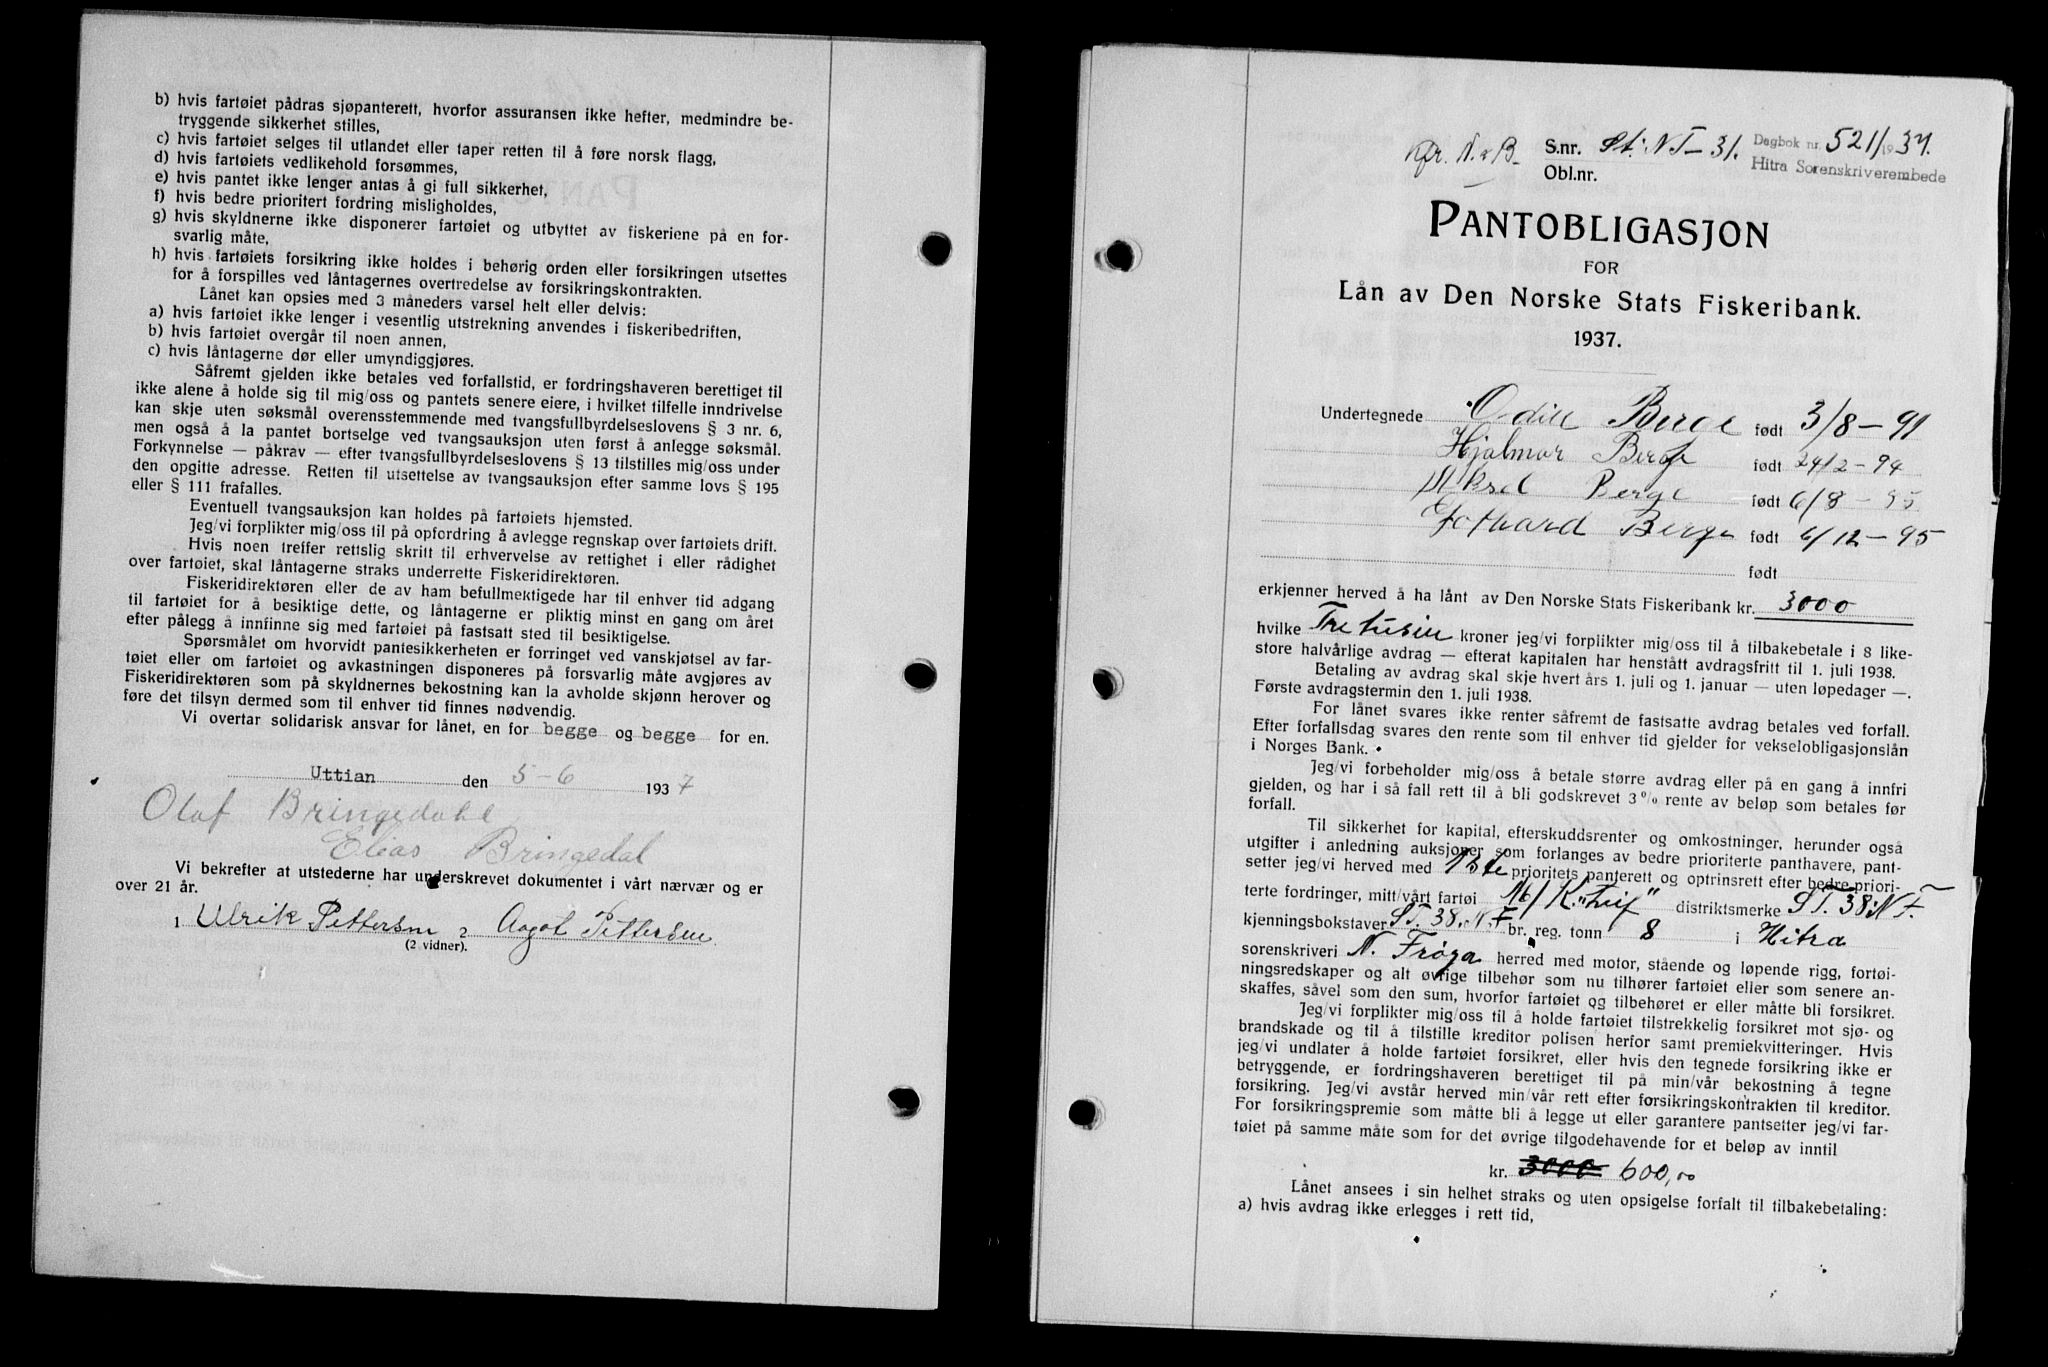 b) hvis fartøiet pådras sjøpanterett, hvorfor assuransen ikke hefter, medmindre be-
tryggende sikkerhet stilles,
c) hvis fartøiet selges til utlandet eller taper retten til å føre norsk flagg,
d) hvis fartøiets vedlikehold forsømmes,
e) hvis pantet ikke lenger antas å gi full sikkerhet,
f) hvis bedre prioritert fordring misligholdes,
g) hvis skyldnerne ikke disponerer fartøiet og utbyttet av fiskeriene på en for-
svarlig måte,
h) hvis fartøiets forsikring ikke holdes i behørig orden eller forsikringen utsettes
for å forspilles ved låntagernes overtredelse av forsikringskontrakten.
Lånet kan opsies med 3 måneders varsel helt eller delvis:
a) hvis fartøiet ikke lenger i vesentlig utstrekning anvendes i fiskeribedriften,
b) hvis fartøiet overgår til noen annen,
c) hvis låntagerne dør eller umyndiggjøres.
Såfremt gjelden ikke betales ved forfallstid, er fordringshaveren berettiget til
ikke alene å holde sig til mig/oss og pantets senere eiere, i hvilket tilfelle inndrivelse
kan skje uten søksmål overensstemmende med tvangsfullbyrdelseslovens § 3 nr. 6,
men også å la pantet bortselge ved tvangsauksjon uten først å anlegge søksmål.
Forkynnelse — påkrav — efter tvangsfullbyrdelseslovens § 13 tilstilles mig/oss under
den opgitte adresse. Retten til utsettelse av tvangsauksjon efter samme lovs § 195
eller § 111 frafalles.
Eventuell tvangsauksjon kan holdes på fartøiets hjemsted.
Jeg/vi forplikter mig/oss til på opfordring å avlegge regnskap over fartøiets drift.
Hvis noen treffer rettslig skritt til erhvervelse av rettighet i eller rådighet
over fartøiet, skal låntagerne straks underrette Fiskeridirektøren.
Fiskeridirektøren eller de av ham befullmektigede har til enhver tid adgang
til fartøiet for å besiktige dette, og låntagerne er pliktig minst en gang om året
efter pålegg å innfinne sig med fartøiet på fastsatt sted til besiktigelse.
Spørsmålet om hvorvidt pantesikkerheten er forringet ved vanskjøtsel av far-
tøiet eller om fartøiet og avkastningen disponeres på forsvarlig måte avgjøres av
Fiskeridirektøren som på skyldnernes bekostning kan la avholde skjønn herover og
føre det tilsyn dermed som til enhver tid finnes nødvendig.
Vi overtar solidarisk ansvar for lånet, en for begge og begge for en.
Uttian den 5-6 1937
Olaf Bringedahl
Elias Bringedal
Vi bekrefter at utstederne har underskrevet dokumentet i vårt nærvær og er
over 21 år.
1 Ulrik Pettersen 2 Aagot Pettersen
(2 vidner).
Kfr. N. B. S.nr. St. NF-31. Dagbok nr. 521/1937.
Obl.nr. Hitra Sorenskriverembede
PANTOBLIGASJON
FOR
LÅN AV DEN NORSKE STATS FISKERIBANK.
1937.
Undertegnede Odin Berge født 3/8-91
Hjalmar Berge født 24/2-94
Aksel Berge født 6/8-95
Gothard Berge født 6/12-95
født
erkjenner herved å ha lånt av Den Norske Stats Fiskeribank kr. 3000
hvilke Tretusin kroner jeg/vi forplikter mig/oss til å tilbakebetale i 8 like-
store halvårlige avdrag — efterat kapitalen har henstått avdragsfritt til 1. juli 1938.
Betaling av avdrag skal skje hvert års 1. juli og 1. januar — uten løpedager —.
Første avdragstermin den 1. juli 1938.
For lånet svares ikke renter såfremt de fastsatte avdrag betales ved forfall.
Efter forfallsdag svares den rente som til enhver tid gjelder for vekselobligasjonslån
i Norges Bank.
Jeg/vi forbeholder mig/oss å betale større avdrag eller på en gang å innfri
gjelden, og har i så fall rett til å bli godskrevet 3 % rente av beløp som betales før
forfall.
Til sikkerhet for kapital, efterskuddsrenter og omkostninger, herunder også
utgifter i anledning auksjoner som forlanges av bedre prioriterte panthavere, pant-
setter jeg/vi herved med 1ste prioritets panterett og optrinsrett efter bedre priori-
terte fordringer, mitt/vårt fartøi M/K. "Leif" distriktsmerke ST. 38. NF.
kjenningsbokstaver ST. 38. N.F br. reg. tonn 8 i Hitra
sorenskriveri N. Frøya herred med motor, stående og løpende rigg, fortøi-
ningsredskaper og alt øvrige tilbehør som nu tilhører fartøiet eller som senere an-
skaffes, såvel som den sum, hvorfor fartøiet og tilbehøret er eller måtte bli forsikret.
Jeg/vi forplikter mig/oss til å holde fartøiet tilstrekkelig forsikret mot sjø- og
brandskade og til å tilstille kreditor polisen herfor samt premiekvitteringer. Hvis
jeg/vi undlater å holde fartøiet forsikret, eller hvis den tegnede forsikring ikke er
betryggende, er fordringshaveren berettiget til på min/vår bekostning å tegne
forsikring. Jeg/vi avstår herved min/vår rett efter forsikringskontrakten til kreditor.
For forsikringspremie som måtte bli å legge ut eller garantere pantsetter jeg/vi far-
tøiet på samme måte som for det øvrige tilgodehavende for et beløp av inntil
kr. 3000 600,00
Lånet ansees i sin helhet straks og uten opsigelse forfalt til tilbakebetaling:
a) hvis avdrag ikke erlegges i rett tid,